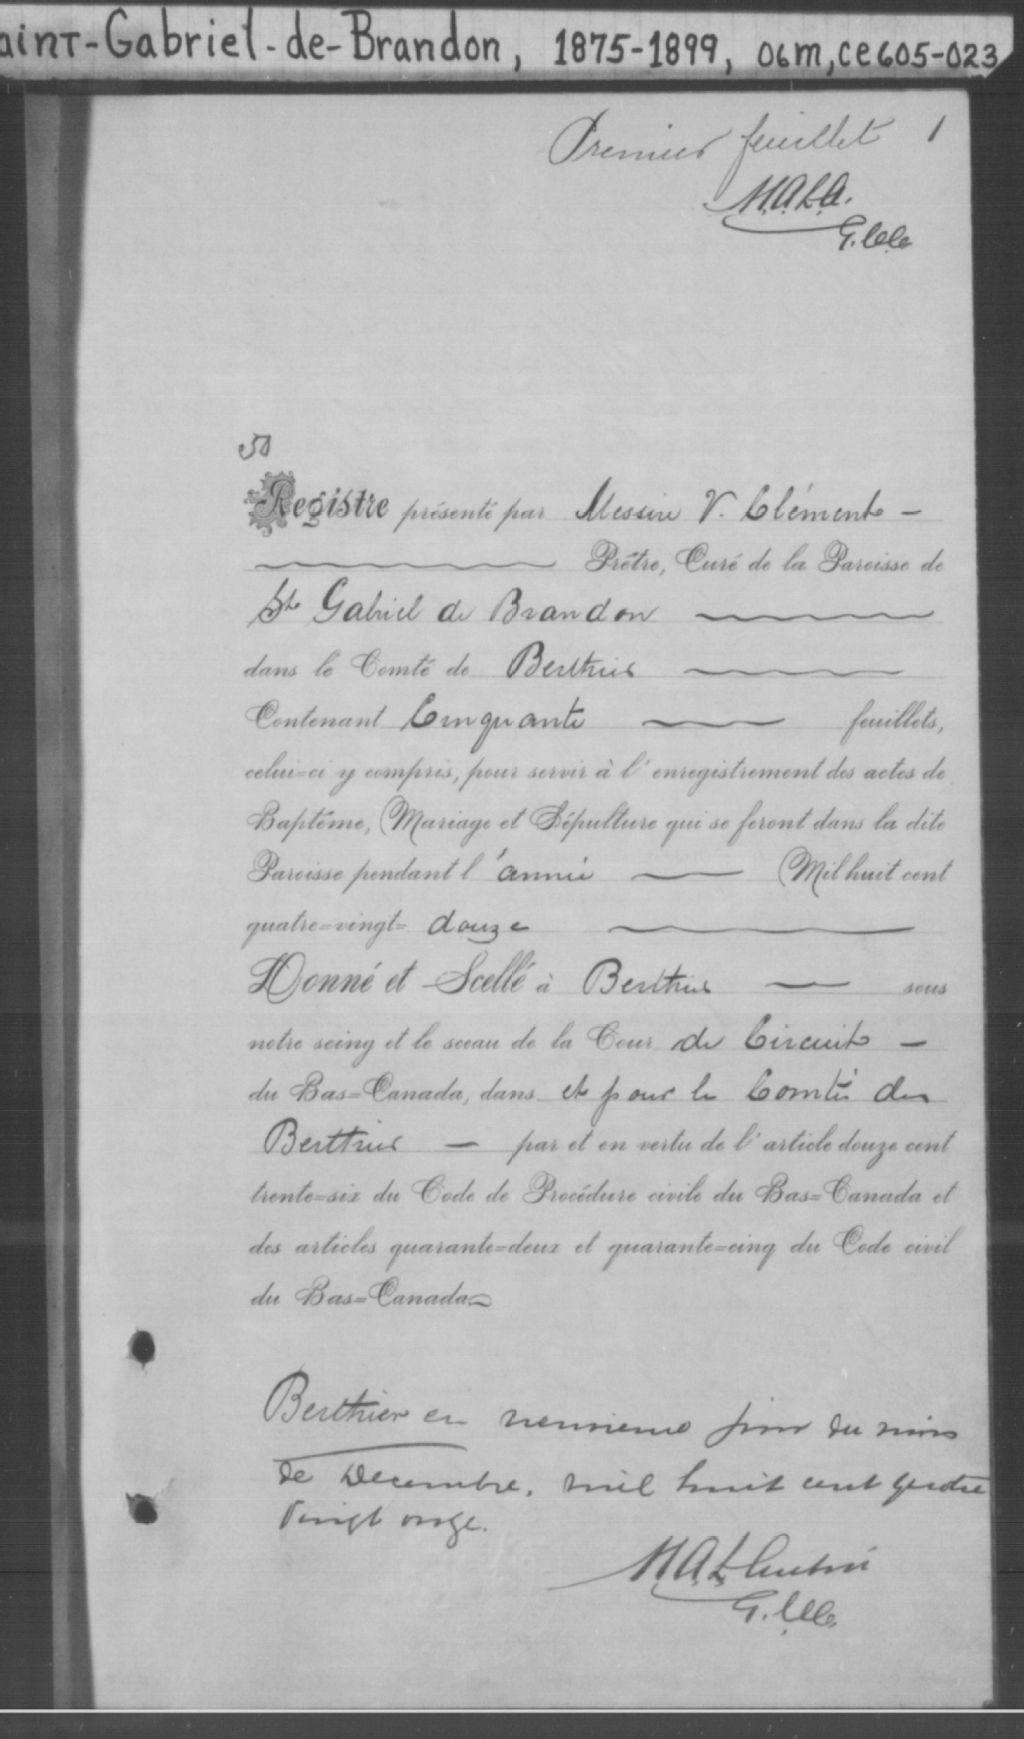 aint-Gabriel-de-Brandon, 1875-1899, 06m,ce605-023
Premier feuillet 1
M.A.L.A.
G.C.C.
50
Registre présenté par Messire V. Clément
Prêtre, Curé de la Paroisse de
St Gabriel de Brandon
dans le Comté de Berthier
Contenant Cinquante feuillets,
celui=ci y compris, pour servir à l'enregistrement des actes de
Baptême, Mariage et Sépulture qui se feront dans la dite
Paroisse pendant l'année Mil huit cent
quatre=vingt= douze
Donné et Scellé à Berthier sous
notre seing et le sceau de la Cour de Circuit
du Bas=Canada, dans et pour le Comté de
Berthier par et en vertu de l'article douze cent
trente=six du Code de Procédure civile du Bas=Canada et
des articles quarante=deux et quarante=cinq du Code civil
du Bas=Canada
Berthier ce neuvieme jour du mois
de Decembre, mil huit cent quatre
Vingt onze.
M.A.L.
G.C.C.